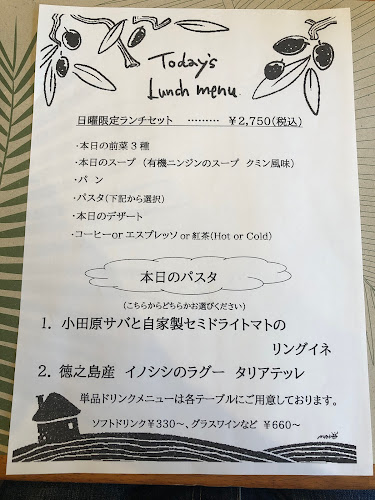 Today's
Lunch menu
日曜限定ランチセット ……… ￥2,750(税込)
・本日の前菜３種
・本日のスープ （有機ニンジンのスープ クミン風味）
・パン
・パスタ(下記から選択)
・本日のデザート
・コーヒーor エスプレッソ or 紅茶(Hot or Cold)
本日のパスタ
(こちらからどちらかお選びください)
1. 小田原サバと自家製セミドライトマトの
リングイネ
2. 徳之島産 イノシシのラグー タリアテッレ
単品ドリンクメニューは各テーブルにご用意しております。
ソフトドリンク￥330～、グラスワインなど ￥660～